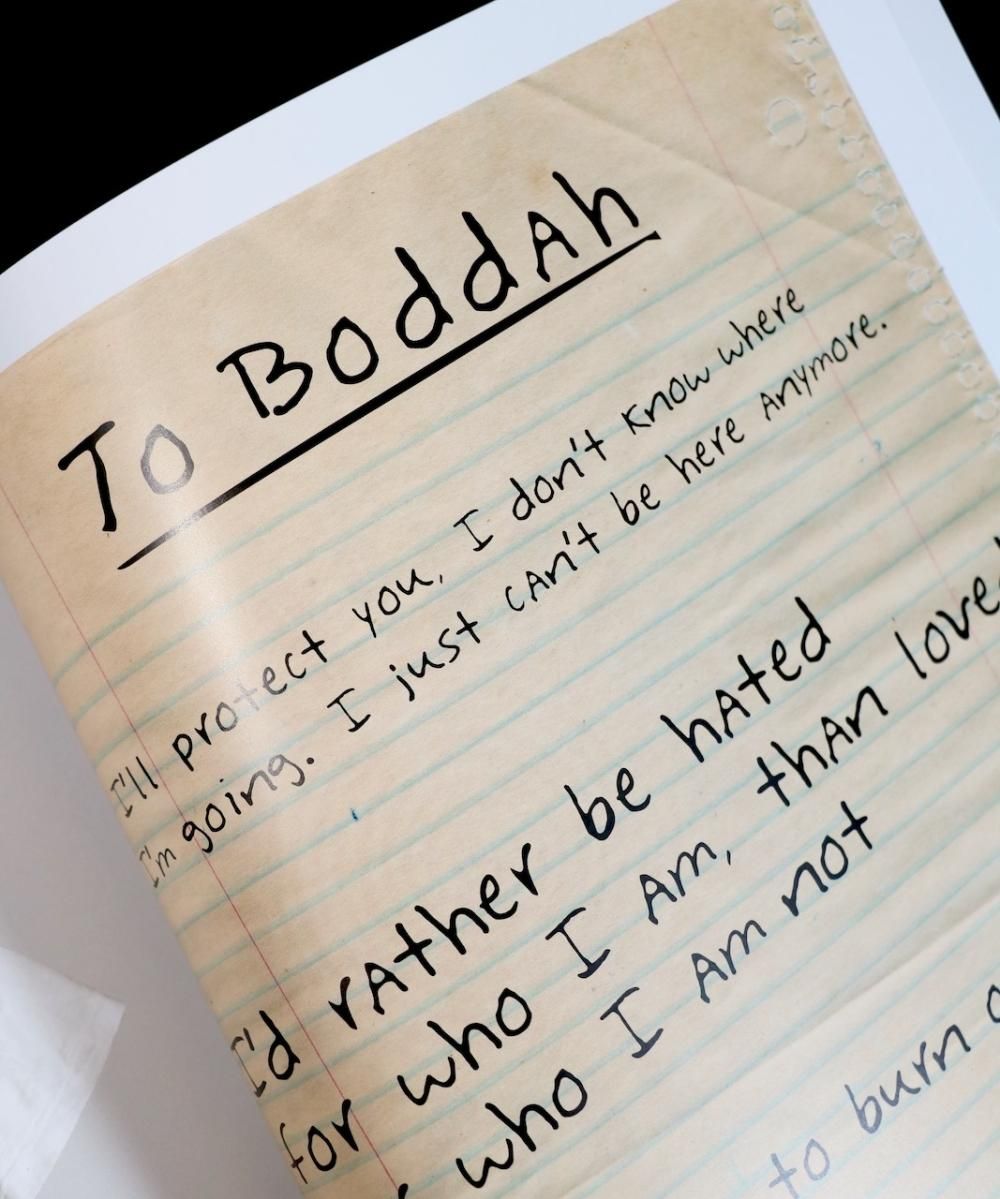 To BoddAh
I'll protect you, I don't know where
I'm going. I just cAn't be here Anymore.
I'd rAther be hAted
for who I Am, thAn love
who I Am not
to burn